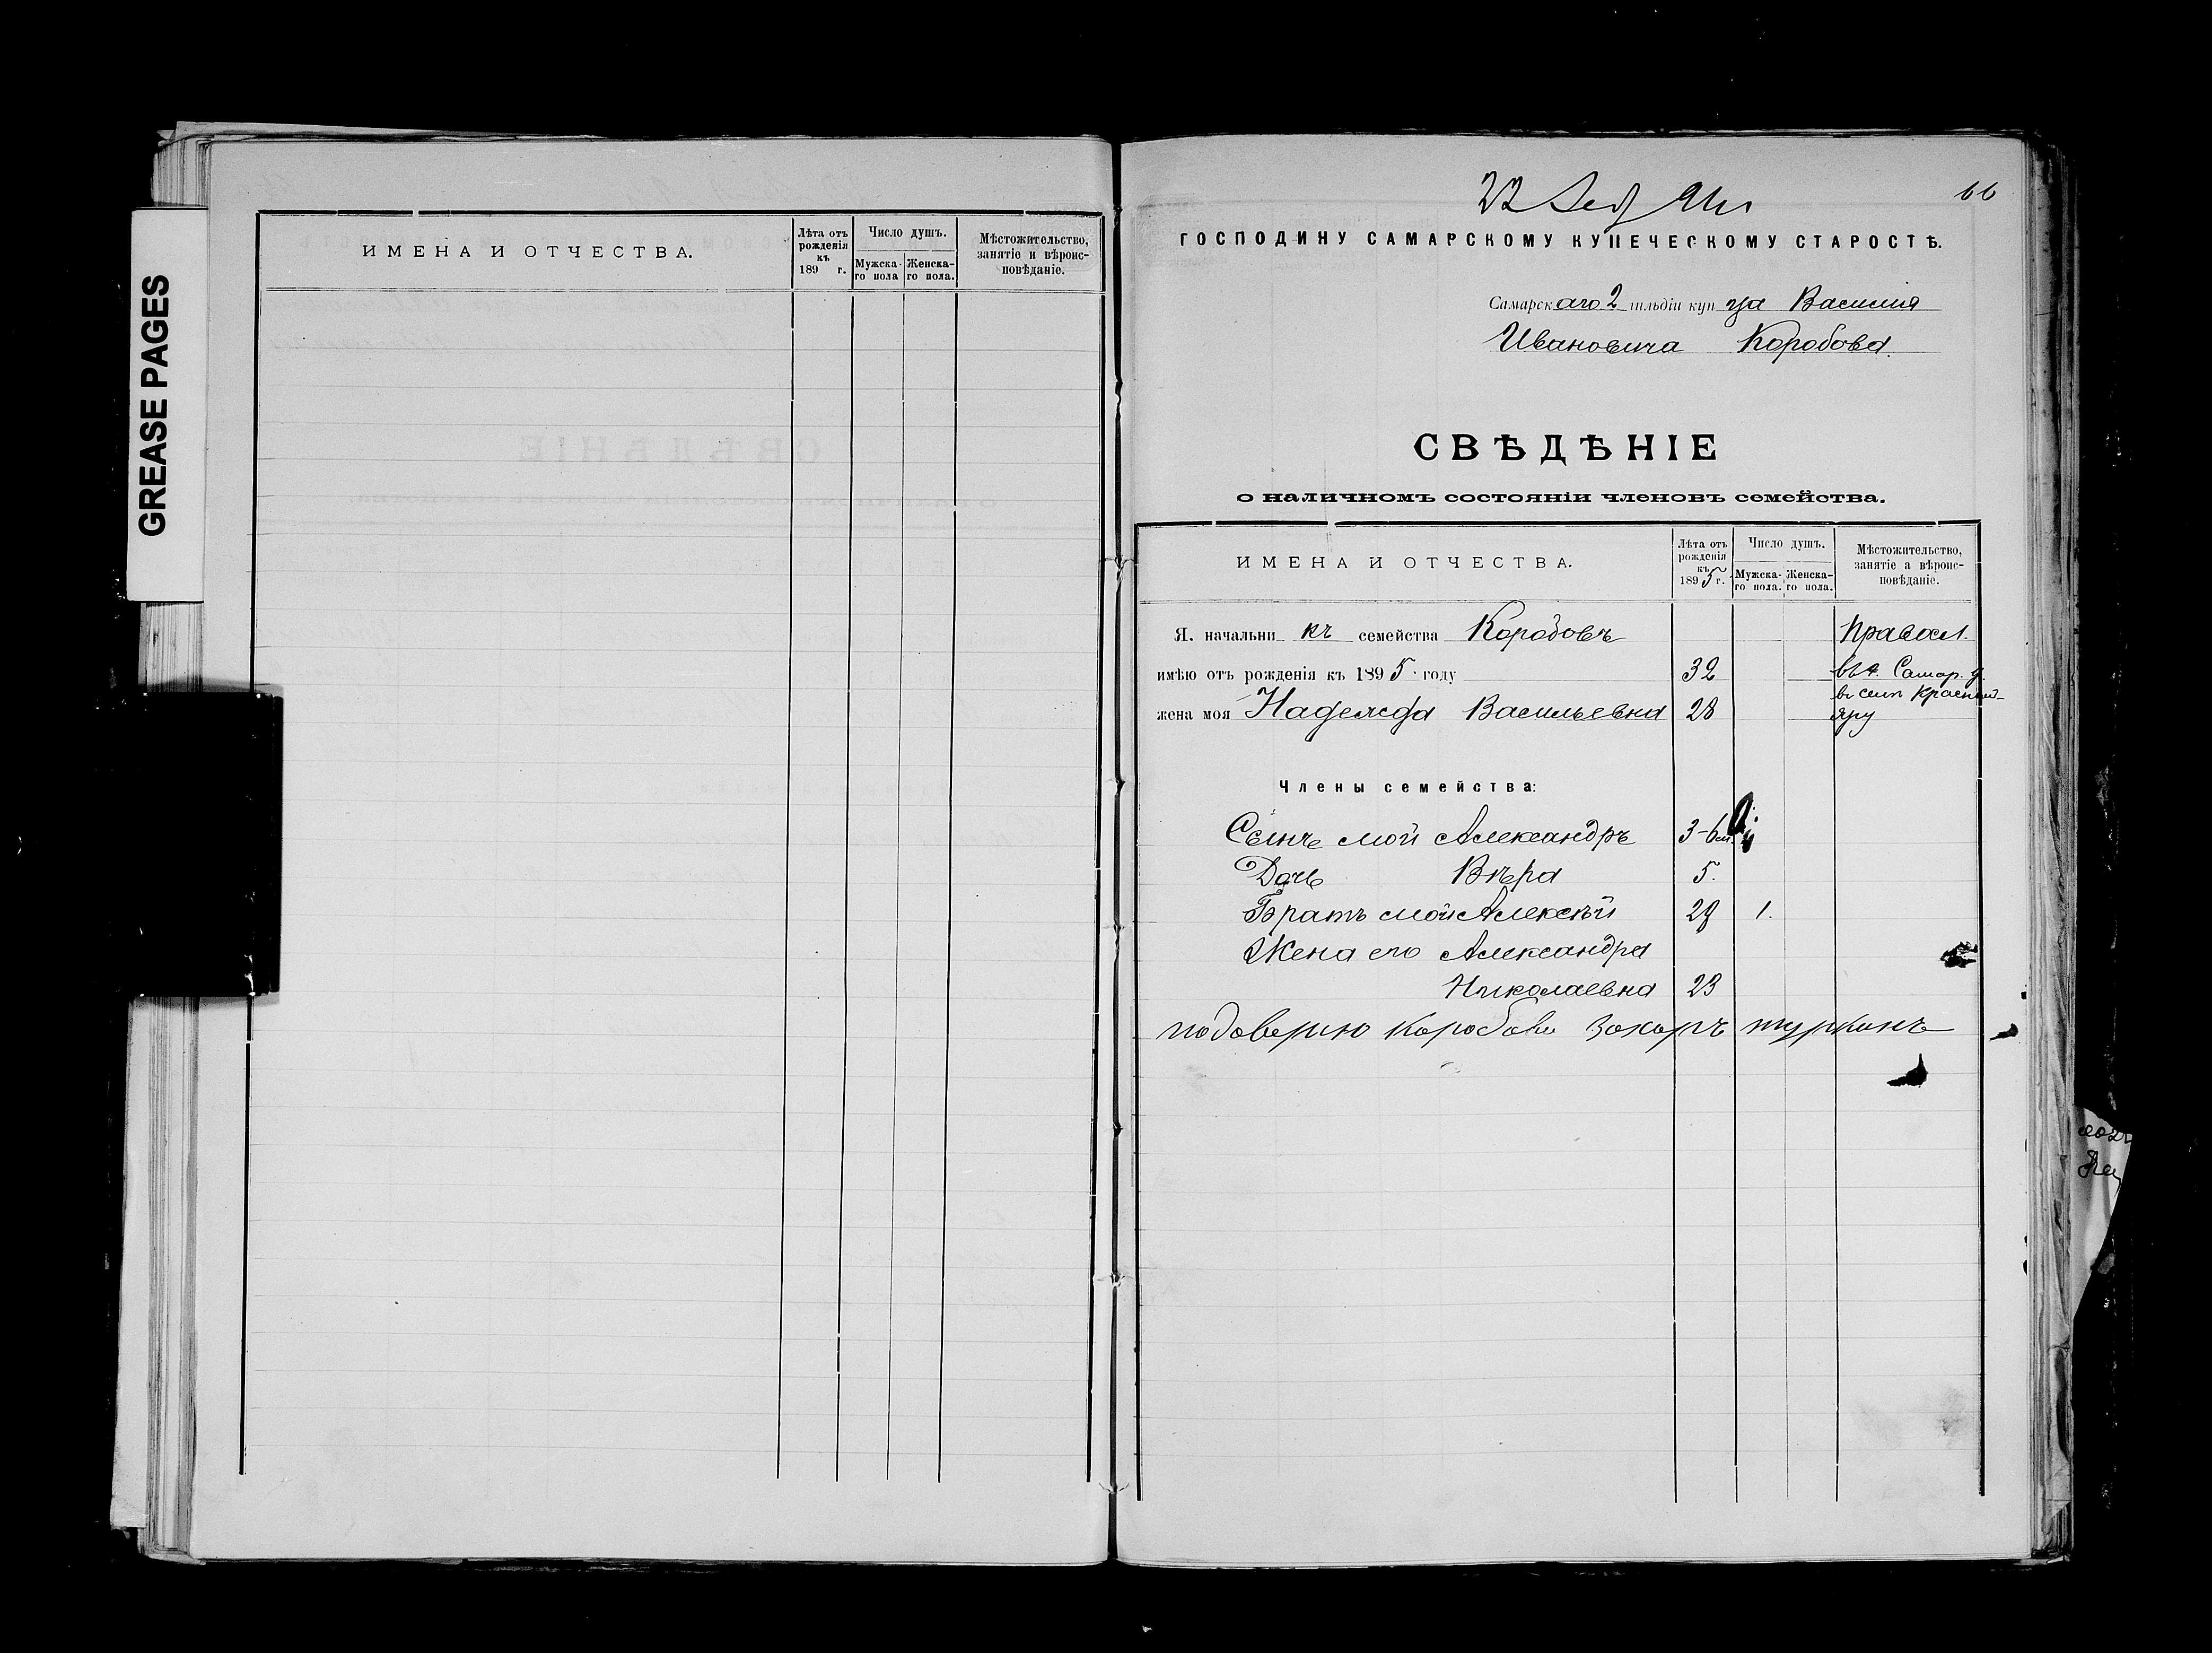 GREASE PAGES
ИМЕНА И ОТЧЕСТВА.
Лѣта отъ рожденія къ 189 г.
Число душъ.
Мужска-го пола
Женска-го пола.
Мѣстожительство, занятіе и вѣроис-повѣданіе.
22
66
ГОСПОДИНУ САМАРСКОМУ КУПЕЧЕСКОМУ СТАРОСТѢ.
Самарскаго 2 гильдіи купца Василія
Ивановича Коробова.
СВѢДѢНІЕ
о наличномъ состояніи членовъ семейства.
ИМЕНА И ОТЧЕСТВА.
Лѣта отъ рожденія къ 1895 г.
Число душъ.
Мужска-го пола.
Женска-го пола.
Мѣстожительство, занятіе а вѣроис-повѣданіе.
Я. начальникъ семейства Коробовъ Правосл.
имѣю отъ рожденія къ 1895 году 32 Самар. у.
въ селѣ Красный-
жена моя Надежда Васильевна 28 Яру
Члены семейства:
Сынъ мой Александръ 3-6м.
Дочь Вѣра 5.
Братъ мой Алексѣй 29 1.
Жена его Александра
Николаевна 23
подоверию Коробова Захаръ туркинъ